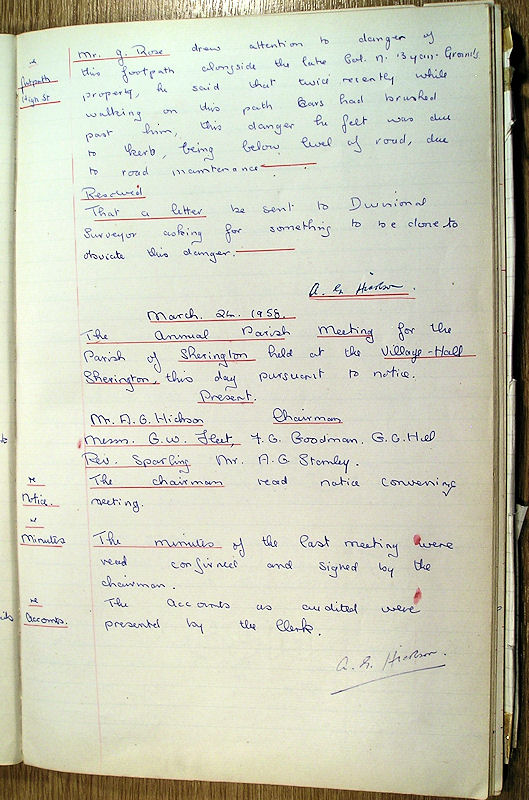 re
footpath
High St
Mr. G. Rose drew attention to danger of
this footpath alongside the late Col. A.
property, he said that twice recently while
walking on this path Cars had brushed
past him, this danger he felt was due
to kerb, being below level of road, due
to road maintenance
Resolved
That a letter be sent to Divisional
Surveyor asking for something to be done to
obviate this danger.
A. G. Hickson.
March. 24. 1958.
The Annual Parish Meeting for the
Parish of Sherington held at the Village-Hall
Sherington, this day pursuant to notice.
Present.
Mr. A. G. Hickson Chairman
Messrs. G. W. Fleet, F. G. Goodman, G. G. Hell
Rev. Sparling Mr. A. G Stamley.
re
Notice.
The chairman read notice convening
meeting.
re
Minutes
The minutes of the last meeting were
read confirmed and signed by the
chairman.
re
Accounts.
The accounts as audited were
presented by the Clerk.
A. G. Hickson.